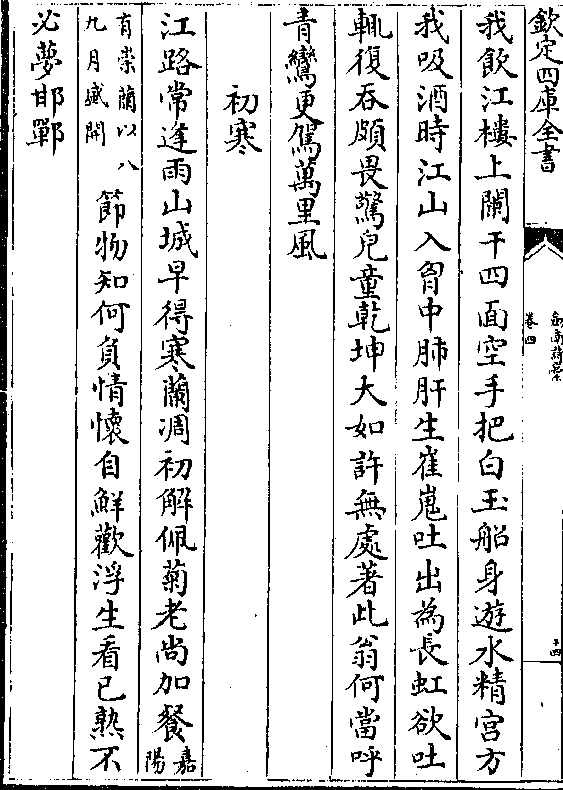 欽定四庫全書
劍南詩藁
卷四
十四
我飲江樓上闌干四面空手把白玉船身遊水精宮方
我吸酒時江山入胷中肺肝生崔嵬吐出為長虹欲吐
輒復吞頗畏驚兒童乾坤大如許無處著此翁何當呼
青鸞更駕萬里風
初寒
江路常逢雨山城早得寒蘭凋初解佩菊老尚加餐嘉陽
有崇蘭以八九月盛開節物知何負情懷自鮮歡浮生看已熟不
必夢邯鄲